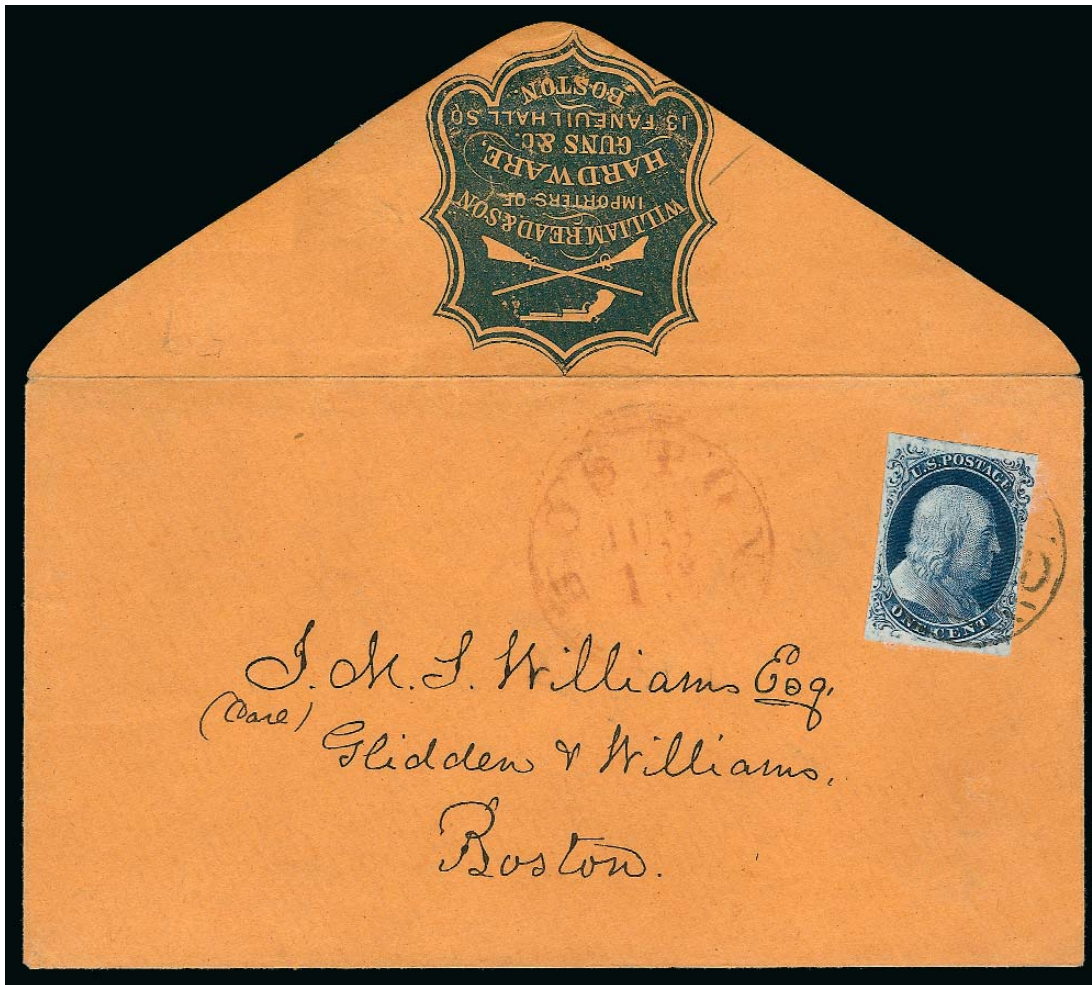 WILLIAM READ & SON
IMPORTERS OF
HARDWARE,
GUNS &C.
13 FANEUIL HALL SQ
BOSTON.
BOSTON
JUL
1
U.S. POSTAGE
ONE CENT
J. M. S. Williams Esq.
(Care)
Glidden & Williams.
Boston.